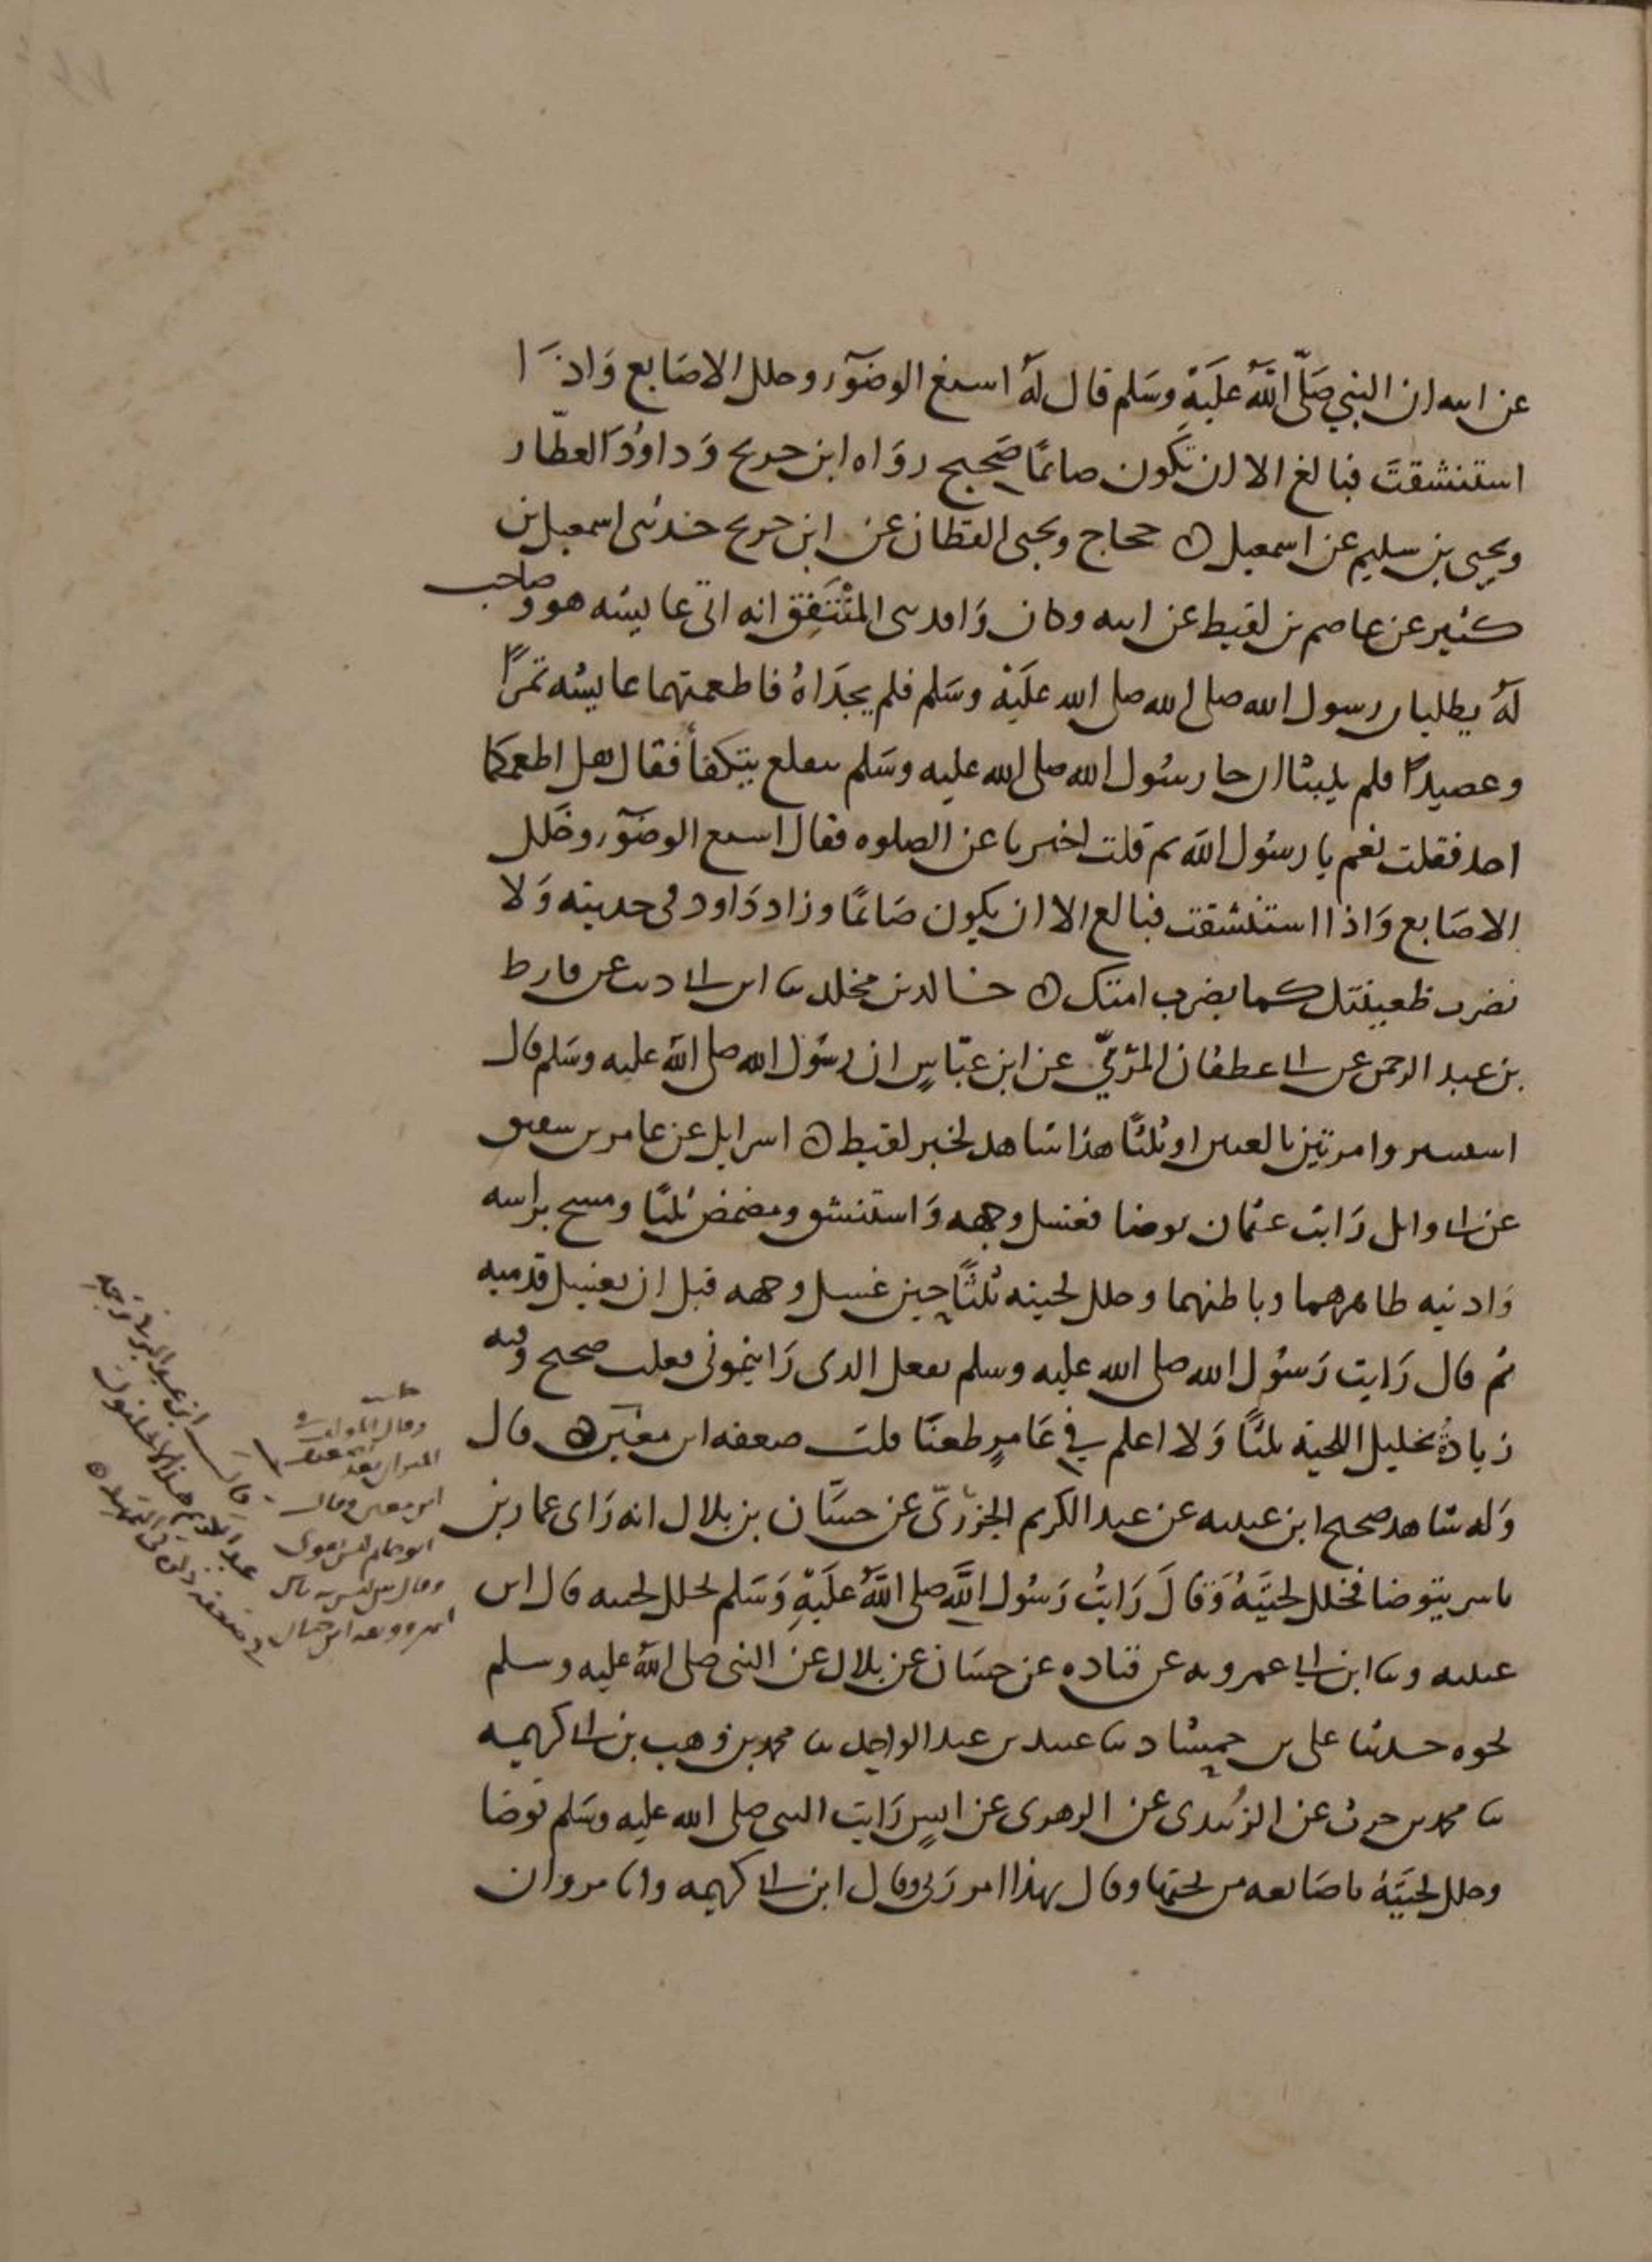 عن ابيه ان النبي صَلَّى اللهُ عَلَيْهِ وسَلم قال لَهُ اسبغ الوضوء وخلل الاصَابع وَاذَا
استنشقتَ فبالغ الا ان تكون صائمًا صَحيح روَاه ابن جريج وَداوُدَ العطّار
ويحيى بن سليم عن اسمعيل ه حجاج ويحيى القطان عن ابن جريج حدثنى اسمعيل بن
كثير عن عاصم بن لقيط عن ابيه وكان وَافد بنى المُنْتَفِق انه اتى عايشه هو وصاحب
لَهُ يطلبان رسول الله صلى الله صلى الله عَلَيْهِ وسَلم فلم يجدَاهُ فاطعمتهما عايشه تمرًا
وعصيدًا فلم يلبثا ان جا رسُول الله صلى الله عليه وسَلم يتقلع يتكفأ فقال هل اطعمكما
احد فقلت نعم يا رسُول الله ثم قلت اخبرنا عن الصلوه فقال اسبغ الوضوء وخَلل
الاصَابع وَاذا استنشقت فبالغ الا ان يكون صَائمًا وزاد دَاود فى حديثه وَلا
تضرب ظعينتك كما يضرب امتك ه خالد بن مخلد ثنا ابن ابى ذئب عن قارظ
بن عبد الرحمن عن ابى غطفان المرّيّ عن ابن عبّاسٍ ان رسُول الله صلى الله عليه وسَلم قال
استنثروا مرتين بالغتين او ثلثًا هذا شاهد لخبر لقيط ه اسرايل عن عامر بن شقيق
عن ابى وايل رَايت عثمان توضا فغسل وجهه وَاستنشق ومضمض ثلثًا ومسح براسه
وَاذنيه ظاهرهما وباطنهما وخلل لحيته ثلثًا حين غسل وجهه قبل ان يغسل قدميه
ثم قال رَايت رَسُول الله صلى الله عليه وسلم يفعل الذى رَايتمونى فعلت صحيح وفيه
زيادةُ تخليل اللحية ثلثًا وَلا اعلم في عَامرٍ طعنًا قلت ضعفه ابن معين ه قال
وَله شاهد صحيح ابن عيينه عن عبد الكريم الجزريّ عن حسَّان بن بلال انه رَاى عمار بن
ياسر يتوضا فخلل لحيَتَهُ وَقَالَ رَايتُ رَسُول اللَّهِ صلى اللَّهُ عَلَيْهِ وَسَلم يخلل لحيته قال ابن
عيينه وثنا ابن ابى عروبه عن قتاده عن حسَان عن بلال عن النبى صلى اللهُ عليه وسلم
نحوه حدثنا على بن حمشاد ثنا عبيد بن عبد الواحد ثنا محمد بن وهب بن ابى كريمه
ثنا محمد بن حرب عن الزُبيدى عن الزهرى عن انسٍ رَايت النبى صلى الله عليه وسَلم توضا
وخلل لحيَتَهُ باصَابعه من تحتها وقال بهذا امرنى ربى وقال ابن ابى كريمه وانا مروان
ابن معين وقال
ابو حاتم ليس بقوى
وقال س ليس به باس